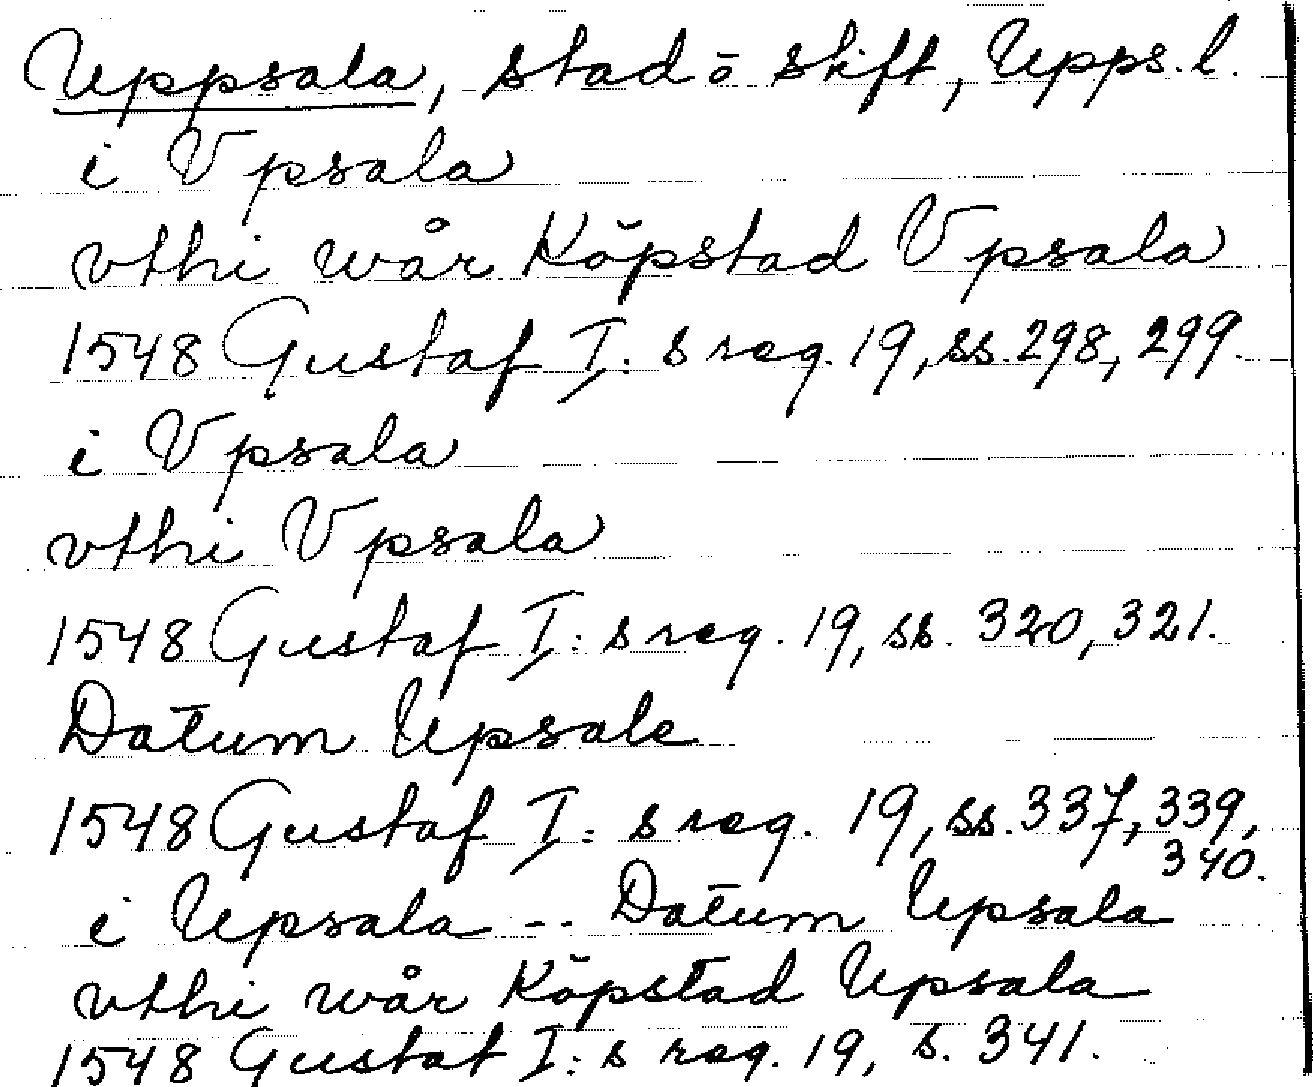 Uppsala, stad o skift, Upps. l.
i Vpsala
vthi wår Köpstad Vpsala
1548 Gustaf I: s reg. 19, ss. 298, 299.
i Vpsala
vthi Vpsala
1548 Gustaf I: s reg. 19, ss. 320, 321.
Datum Upsale
1548 Gustaf I: s reg. 19, ss. 337, 339,
340.
i Upsala -- Datum Upsala
vthi wår Köpstad Upsala
1548 Gustaf I: s reg. 19, s. 341.